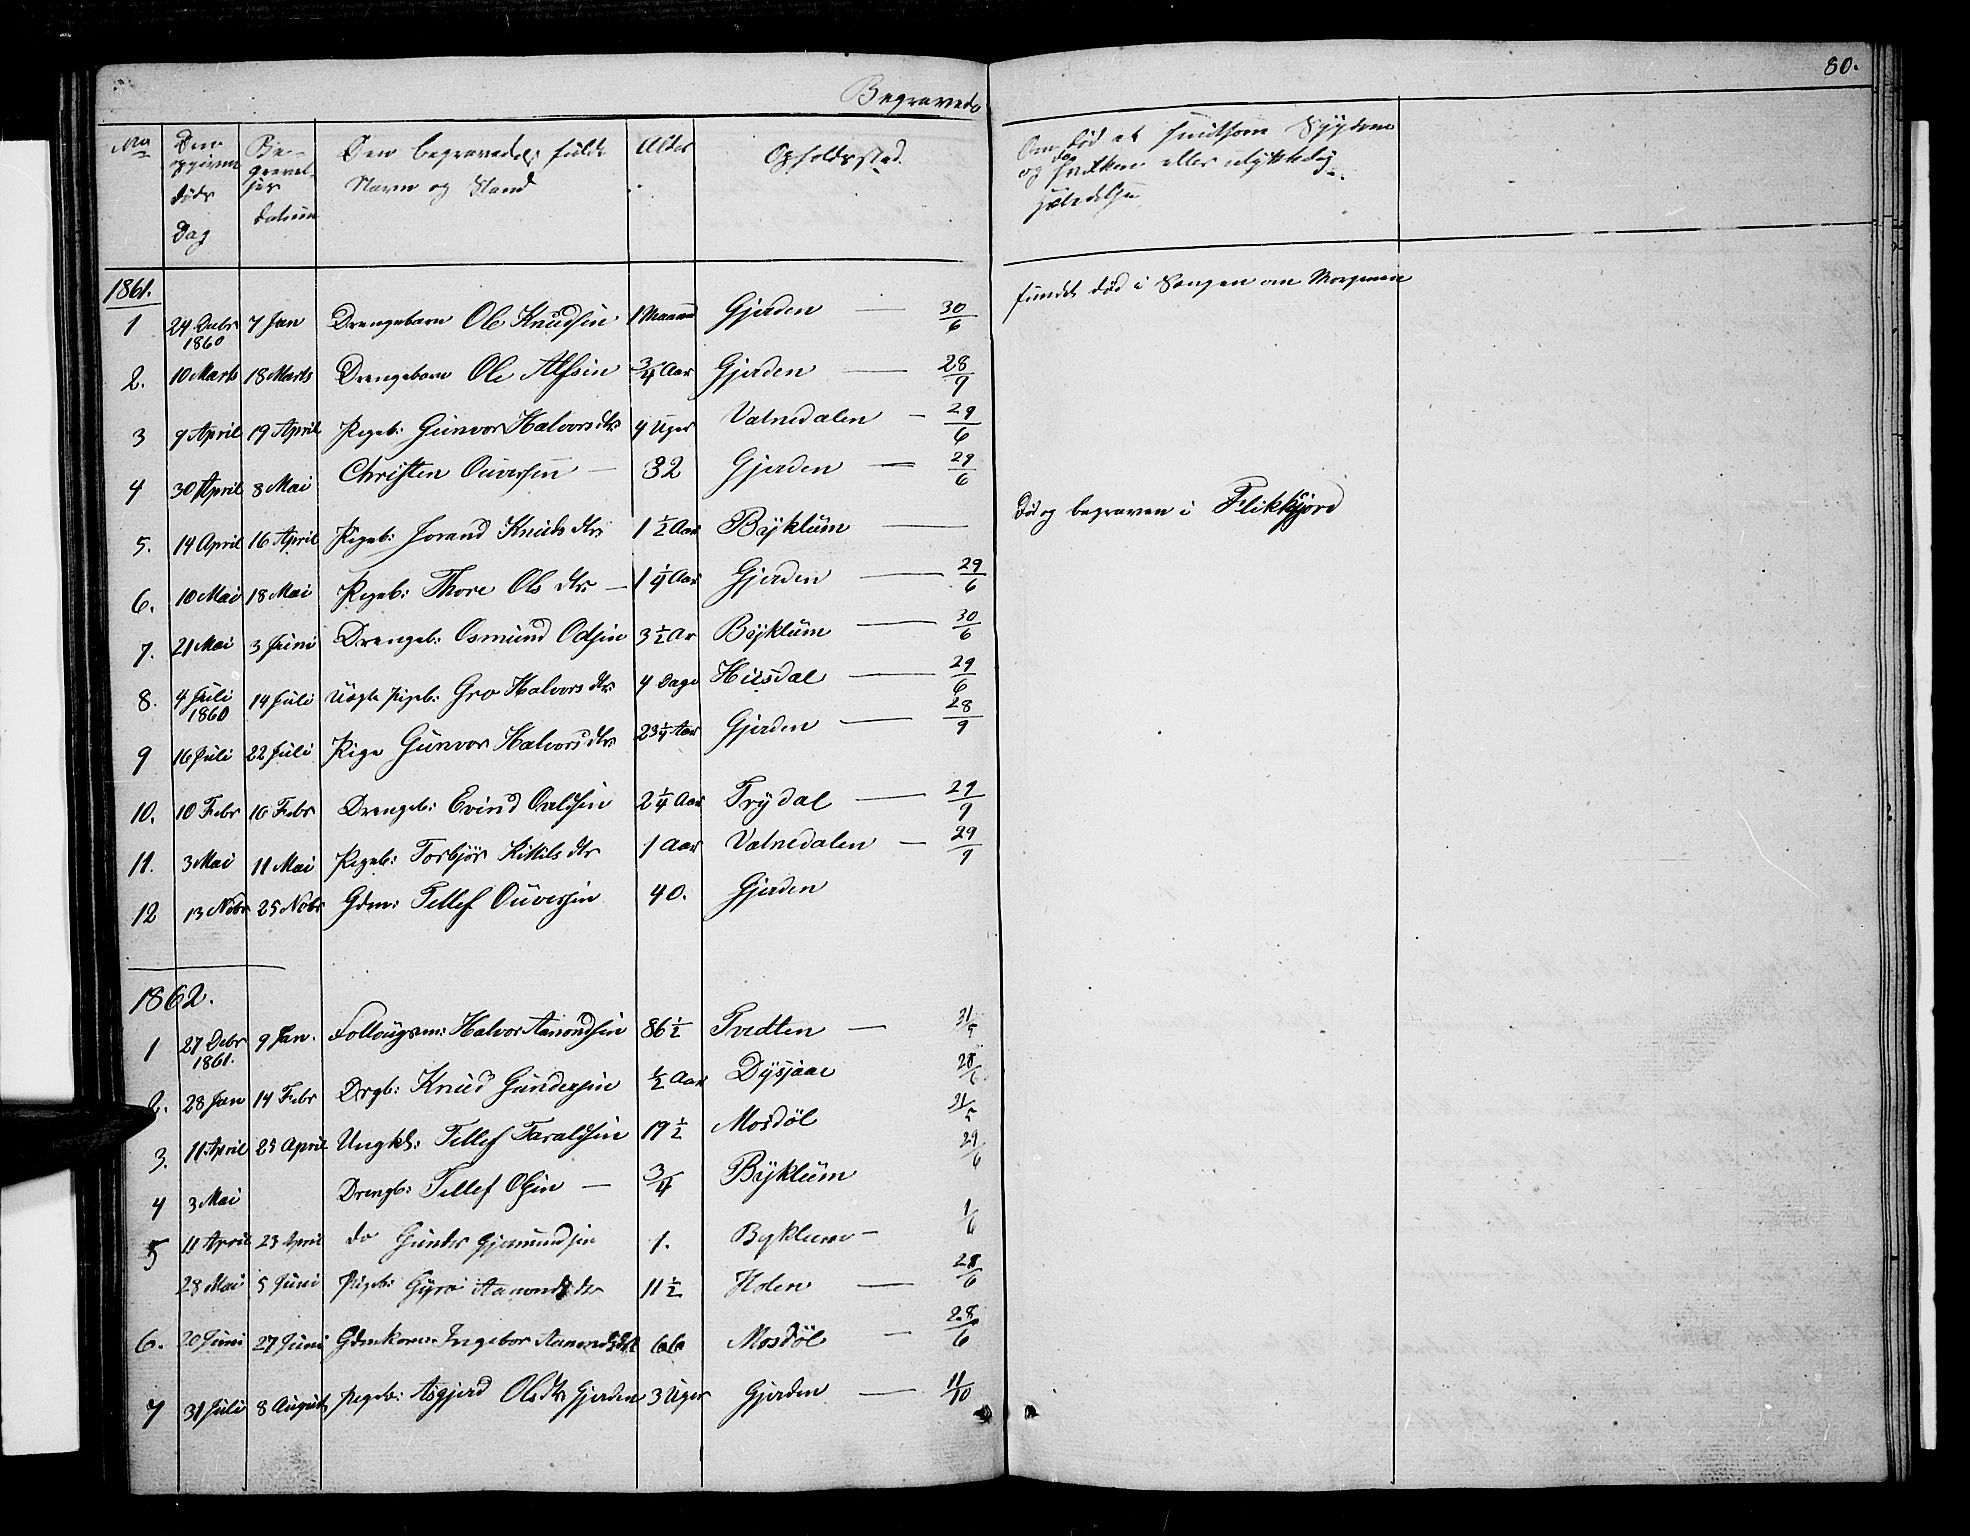 80.
Begravede
No Den opgivne Døds Dag Be- gravel- ses datum Den begravedes fulde Navn og Stand Alder Opholdssted. Om død af smitsom Sygdom og da hvilken eller ulykkelig Hændelse
1861.
1 24 Debr 1860 7 Jan Drengebarn Ole Knudsen 1 Maaned Gjerden — 30/6 fundet død i Sengen om Morgenen
2. 10 Marts 18 Marts Drengebarn Ole Alfsen 3/4 Aar Gjerden — 28/9
3 9 April 19 April Pigeb: Gunvor Halvorsdtr 4 Uger Vatnedalen — 29/6
4 30 April 8 Mai Christen Ouversen — 32 Gjerden — 29/6
5. 14 April 16 April Pigeb: Jorand Knudsdtr 1 1/2 Aar Byklum — Død og begraven i Flikkfjord
6. 10 Mai 18 Mai Pigeb: Thore Olsdtr — 1 1/4 Aar Gjerden — 29/6
7. 21 Mai 3 Juni Drengeb: Osmund Odsen 3 1/2 Ar Byklum — 30/6
8. 4 Juli 1860 14 Juli Uægte Pigeb: Gro Halvorsdtr 4 Dage Hisdal — 29/6
9 16 Juli 22 Juli Pige Gunvor Halvorsdtr 23 1/4 Aar Gjerden — 28/9
10. 10 Febr 16 Febr Drengeb: Evind 2 1/4 Aar Trydal — 29/9
11. 3 Mai 11 Mai Pigeb: Torbjør Kittilsdtr 1 Aar Vatnedalen — 29/9
12 13 Nobr 25 Nobr Gdm: Tellef Ouversen 40. Gjerden
1862.
1 27 Debr 1861. 9 Jan. Follougsm: Halvor Aanondsen 86 1/2 Tvedten — 31/5
2. 28 Jan 14 Febr Drgb: Knud Gundersen 1/2 Aar Dysjaae 28/6
3. 11 April 23 April Ungkl: Tellef Taraldsen 19 1/2 Mosdøl 31/5
4 3 Mai Drengb: Tellef Olsen — 3/4 Byklum 29/6
5 11 April 23 April do Gunder Gjermundsen 1. Byklum — 1/6
28 Mai 5 Juni Pigeb: Gyro Aanondsdtr 11 1/2 Holen — 28/6
6. 20 Juni 27 Juni Gdmkone Ingebor Aanondsdtr 66 Mosdøl — 28/6
7 31 Juli 8 August Pigeb: Asgjerd Olsdtr Gjerden 3 Uger Gjerden — 11/10